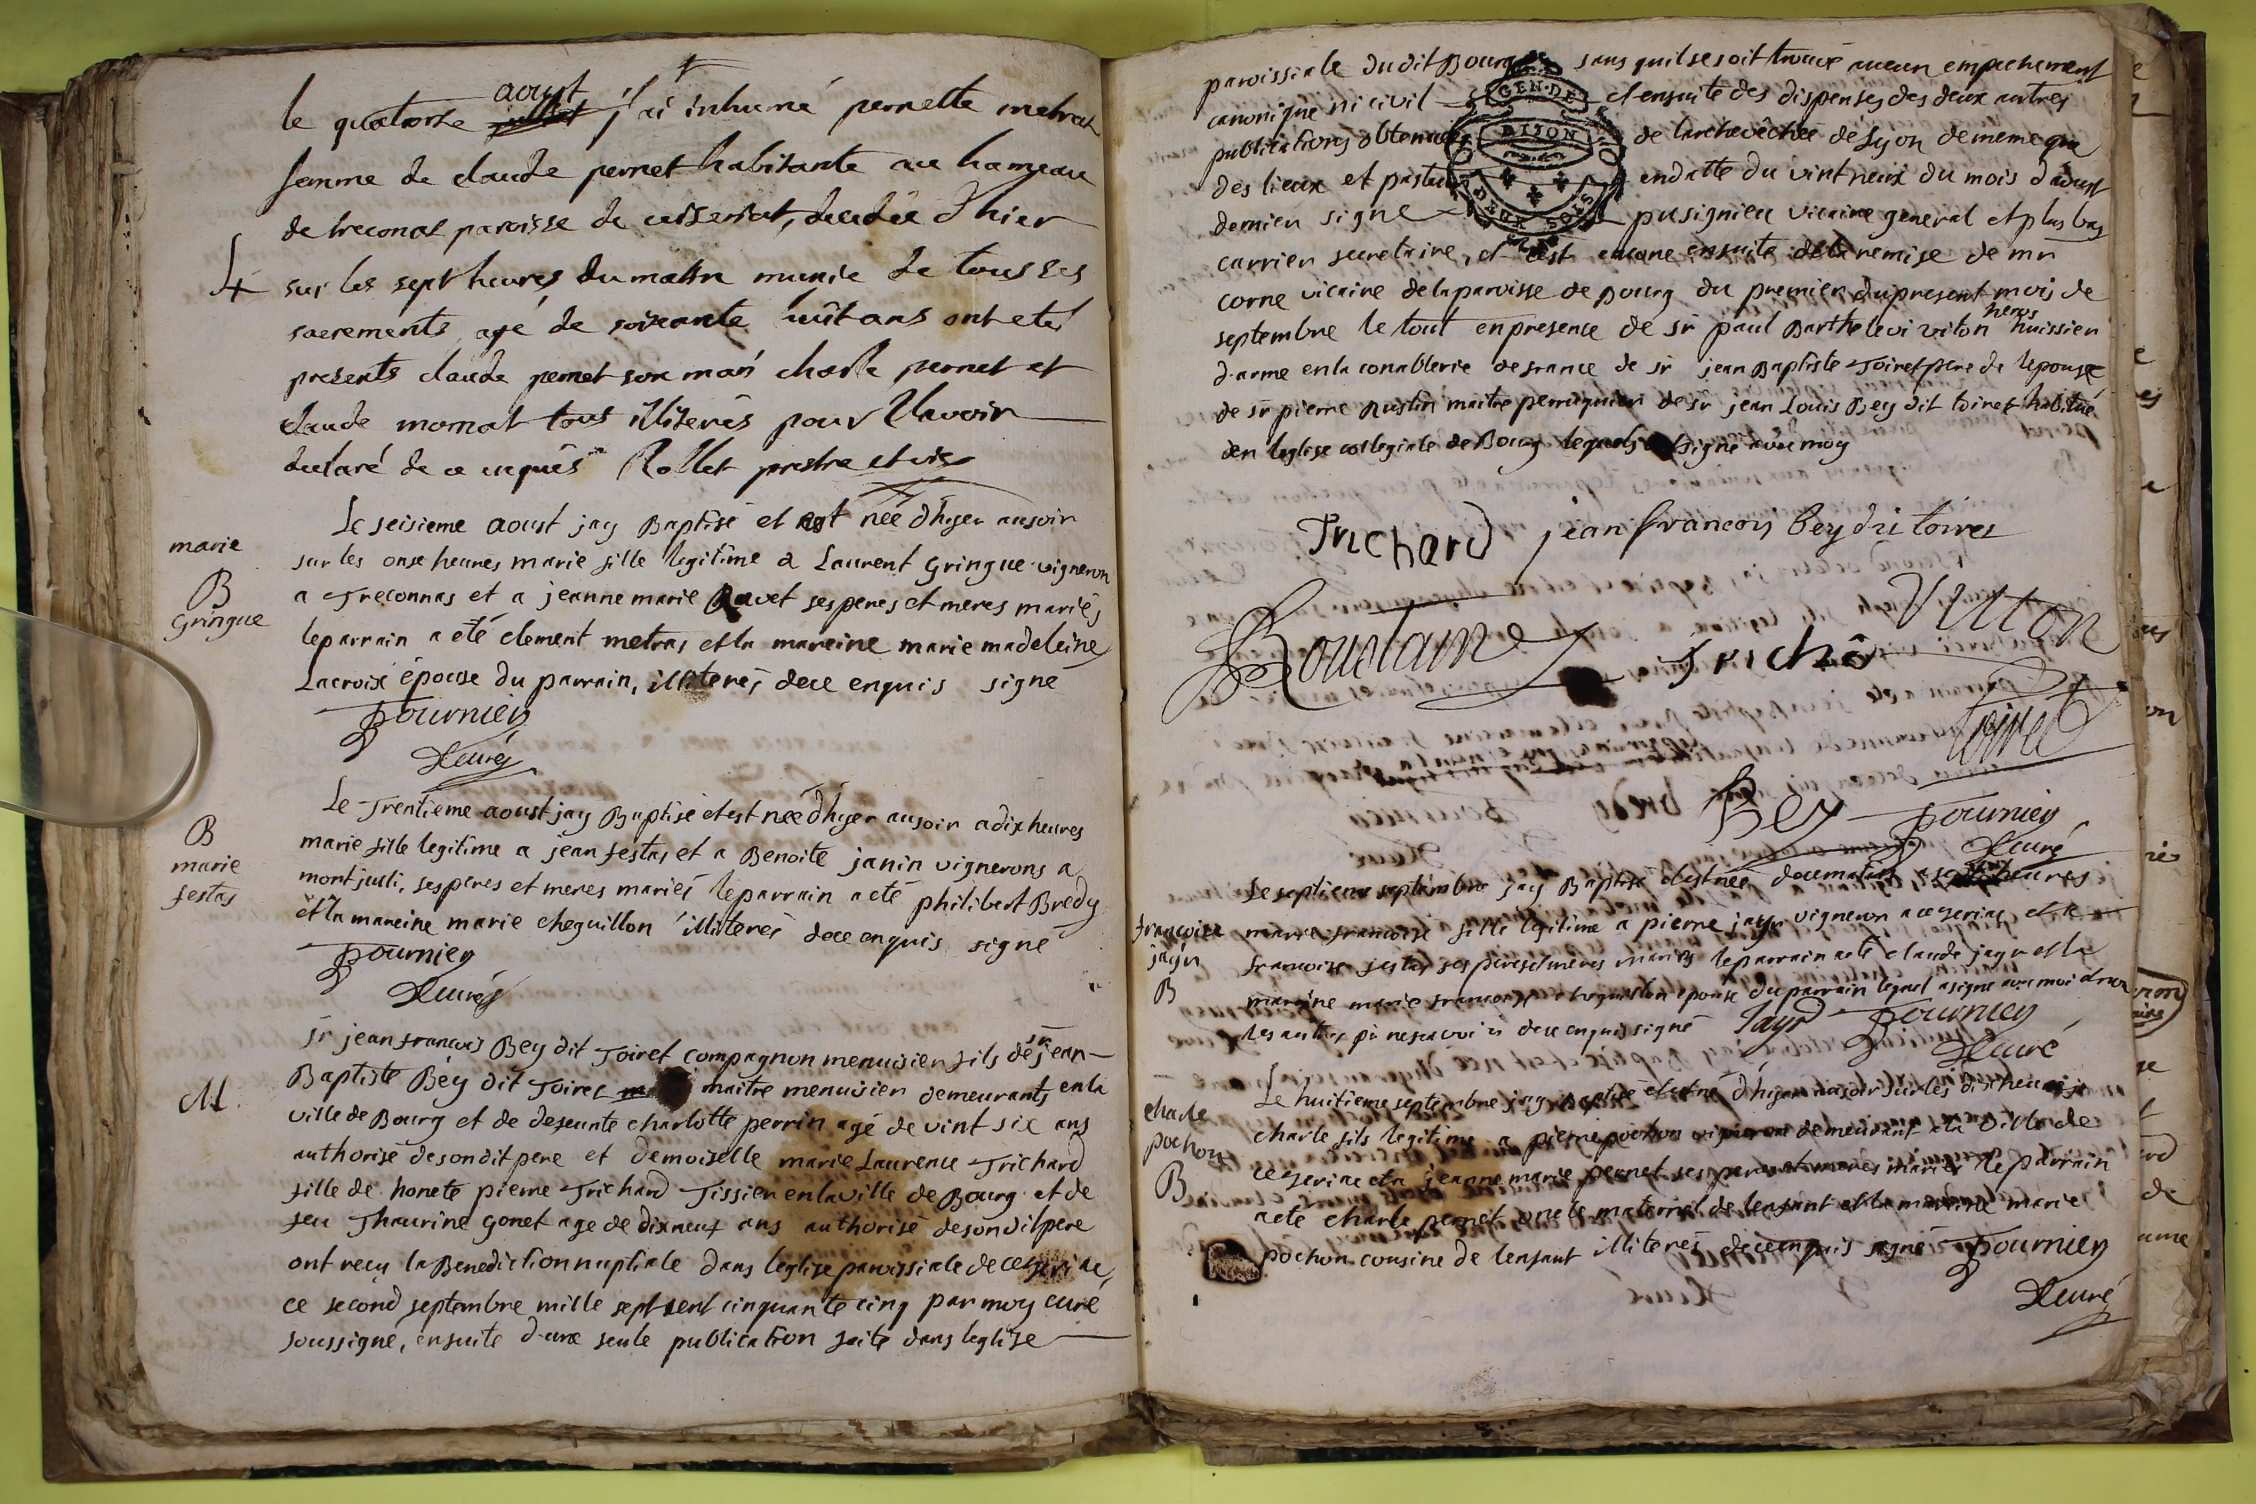 le quatorse aoust j'ai inhumé pernette metras
femme de claude pernet habitante au hameau
de treconas paroisse de ceiseriat, decedée d'hier
sur les sept heures du matin munie de tous ses
sacrements, agé de soixante huit ans ont eté
presents claude pernet son mari charle pernet et
claude momat tous illiterés pour l'lavoir
declaré de ce enquis Rollet prestre et vic
Le seisieme aoust jay Baptisé et est née d'hyer ausoir
sur les onse heures marie fille legitime a Laurent Gringue vigneron
a Treconnas et a jeanne marie Ravet ses peres et meres mariés
le parrain a eté clement metras et la mareine marie madeleine
Lacroix épouse du parrain, illiterés de ce enquis signé
fournier
Curé
marie
B
Gringue
Le Trentieme aoust jay Baptisé et est née d'hyer ausoir a dix heures
marie fille legitime a jean festas et a Benoite janin vignerons a
montjuli, ses peres et meres mariés le parrain a eté philibert Bredy
et la mareine marie cheguillon illiterés de ce enquis signé
fournier
Curé
B
marie
festas
sr jean francois Bey dit Toiret compagnon menuisier fils de sr jean
Baptiste Bey dit Toiret maitre menuisier demeurants en la
ville de Bourg et de defeunte charlotte perrin agé de vint six ans
authorisé de son dit pere et demoiselle marie Laurence Trichard
fille de honete pierre Trichard Tissier en la ville de Bourg et de
feu Thaurine Gonet age de dixneuf ans authorisé de son dit pere
ont recu la Benediction nuptiale dans leglise paroissiale de ceyseriac,
ce second septembre mille sept cent cinquante cinq par moy curé
soussigné, ensuite d'une seule publication faite dans leglise
M.
paroissiale du dit Bourg sans quil se soit trouvé aucun empechement
canonique ni civil et ensuite des dispenses des deux autres
publications obtenues de larchevêchée de Lyon de meme que
des lieux et pasteur en datte du vint neuf du mois d'aoust
dernier signé pusignieu vicaire general et plus bas
carrier secretaire, et c'est encore ensuite de la remise de mr
corne vicaire de la paroisse de Bourg du premier du present mois de
septembre le tout en presence de sr paul Barthelevi viton huissier
d'arme en la conablerie de france de sr jean Baptiste Toiret pere de lepouse
de sr pierre Rustin maitre perruquier de sr jean Louis Bey dit toiret habitué
den leglise collegiale de Bourg lequels signé avec moy
GEN·DE
DIJON
DEUX SOLS
Trichard jean francois bey dit toiret
Viton
Trichâ
toiret
Bey fournier
Curé
Le septieme septembre jay Baptisé et est née de ce matin a sept heures
marie francoise fille legitime a pierre jayr vigneron a ceyseriac et a
francoise festas ses peres et meres mariés le parrain a eté claude jayr et la
mareine marie francoise cheguillon epouse du parrain lequel a signé avec moi et non
les autres pr ne scavoir de ce enquis signé Jayr fournier
Curé
francoise
jayr
B
Le huitieme septembre jay Baptisé et est né d'hyer ausoir sur les dix heures
charle fils legitime a pierre pochon vigneron demeurant a la ville de
ceyseriac et a jeanne marie pernet ses peres et meres mariés le parrain
a eté charle pernet oncle maternel de lenfant et la mareine marie
pochon cousine de lenfant illiterés de ce enquis signé fournier
Curé
charle
pochon
B